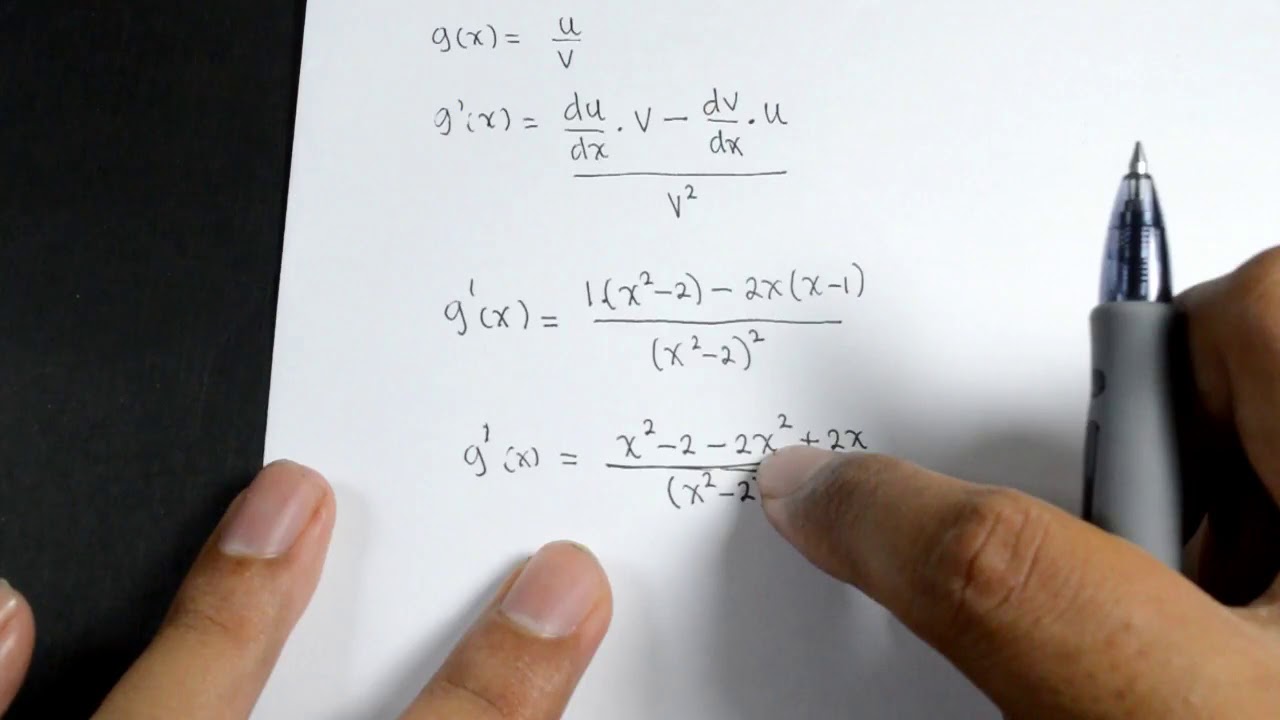 g(x) = u/v
g'(x) = (du/dx · v − dv/dx · u) / v²
g'(x) = (1·(x²−2) − 2x(x−1)) / (x²−2)²
g'(x) = (x²−2−2x²+2x) / (x²−2